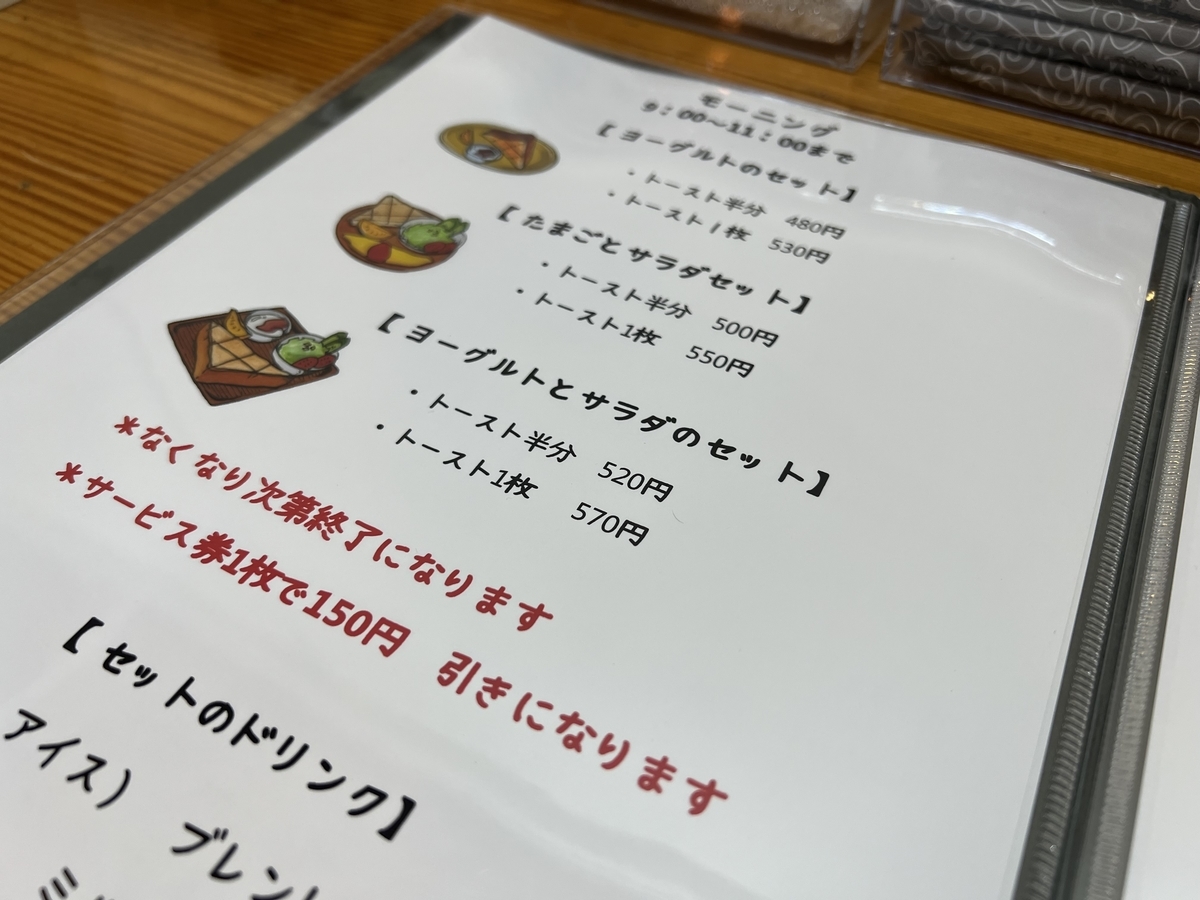 モーニング
9：00〜11：00まで
【ヨーグルトのセット】
・トースト半分　480円
・トースト1枚　530円
【たまごとサラダセット】
・トースト半分　500円
・トースト1枚　550円
【ヨーグルトとサラダのセット】
・トースト半分　520円
・トースト1枚　570円
*なくなり次第終了になります
*サービス券1枚で150円　引きになります
【セットのドリンク】
アイス）　ブレン